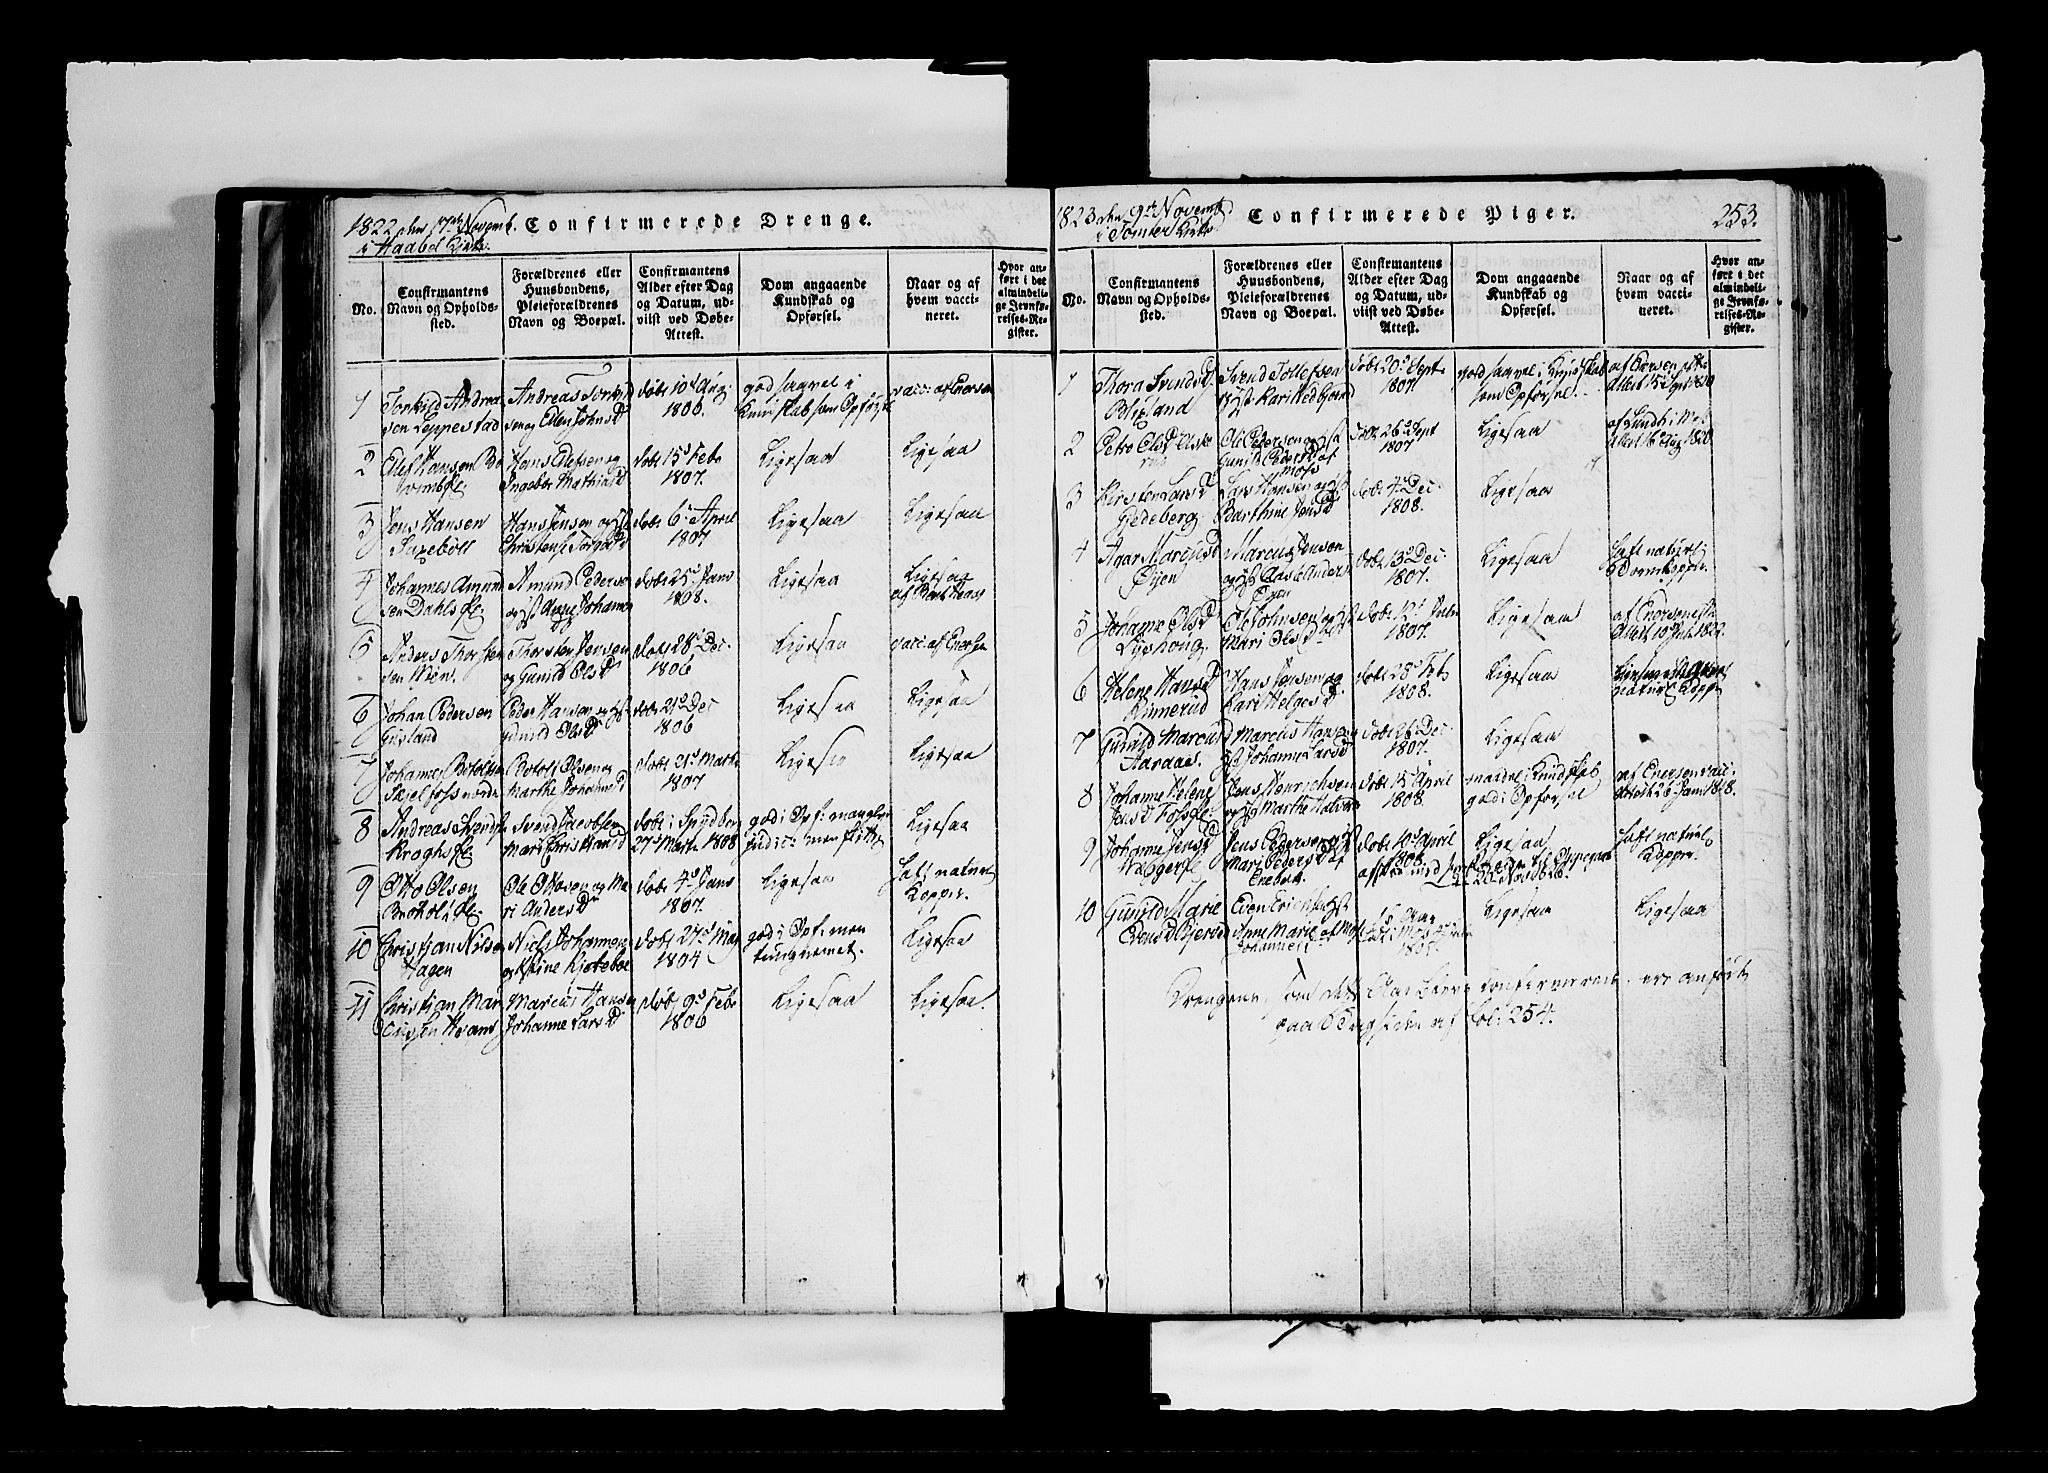 1822 den 17de Novemb. Confirmerede Drenge.
i Haabøl Kirke.
No.
Confirmantens
Navn og Opholds-
sted.
Forældrenes eller
Huusbondens,
Pleieforældrenes
Navn og Boepæl.
Confirmantens
Alder efter Dag
og Datum, ud-
viist ved Døbe-
Attest.
Dom angaaende
Kundskab og
Opførsel.
Naar og af
hvem vacci-
neret.
Hvor an-
ført i det
almindeli-
ge Jevnfø-
relses-Re-
gister.
1
Torkild Andrea
sen Leppestad
Andreas Torkild
sen og Ellen Johnsd
døbt 10d Aug:
1806.
god saavel i
Kundskab som Opførsel
vacc: af Enersen
2
Olef Hansen
Hans Olefsen og
Ingebor Mathiasd
døbt 15d Febr
1807.
Ligesaa
Ligesaa
3
Jens Hansen
Saxebøll
Hans Jensen og
Christense Torgersd
døbt 6d April
1807
Ligesaa
Ligesaa
4
Johannes Amund
sen Dahls
Amund Peders
og Anne Johanne
døbt 25d Jan
1808.
Ligesaa
Ligesaa
af
5
Anders Thorsten
sen Moen.
Thorsten Jensen
og Gunild Olsd
døbt 28d Dec.
1806
Ligesaa
vacc: af Enersen
6
Johan Pedersen
Gusland
Peder Hansen og
Gunild Olsd
døbt 21d Dec
1806
Ligesaa
Ligesaa
7
Johannes Bottolfsen
Skjelfoss nordre
Bottolf Olsen og
Marthe Johannesd
døbt 21d Marts
1807
Ligesaa
Ligesaa
8
Andreas Svends
Kroghs
Svend Jacobsen
Mari Christiansd
døbt i Spydberg
27d Marts 1808
god i Opf: mangler
judic: men flittig
Ligesaa
9
Otto Olsen
Brohol
Ole Ottosen og Ma
ri Andersd
døbt 4d Jan
1807.
Ligesaa
haft naturl
Kopper.
10
Christian Nilsen
Hagen
Niels Johannes
og Kirstine Kjøteboe
døbt 27d Maj
1804
god i Opf: men
tungnemet.
Ligesaa
11
Christian Mar
cussen Hvam
Marcus Hansen
Johanne Larsd
døbt 9d Febr
1806
Ligesaa
Ligesaa.
1823 den 9de Novemb. Confirmerede Piger. 253.
i Tomter Kirke
No.
Confirmantens
Navn og Ophold-
sted.
Forældrenes eller
Huusbondens,
Pleieforældrenes
Navn og Boepæl.
Confirmantens
Alder efter Dag
og Datum, ud-
viist ved Døbe-
Attest.
Dom angaaende
Kundskab og
Opførsel.
Naar og af
hvem vacci-
neret.
Hvor an-
ført i det
almindeli-
ge Jevnfø-
relses-Re-
gister.
1
Thora Svendsd
Bligsland
Svend Tollefsen
Kari Wedbjørnd
døbt 20d Sept
1807
god saavel i Kundskab
som Opførsel.
af Enersen efter
Attest 15 Sept 1820
2
Petro Olsd
Ole Pedersen og
Gunild Pedersd af
Moss
døbt 26d Sept
1807
Ligesaa
af Lundh i
Attest 16 Aug 1820
3
Kirsten Larsd
Gjedeberg
Lars Hansen og
Barthine Jensd
døbt 4d Dec
1808.
Ligesaa
4
Agar Marcusd
Øyen
Marcus Jensen
og Aase Anders
døbt 13d Dec
1807.
Ligesaa
haft naturl
Kopper.
5
Johanne Olsd
Lyshoug
Ole Johnsen og
Mari Olsd
døbt 12d
1807.
Ligesaa
af Enersen
Attest 10 Juli 1822.
6
Helene Hansd
Kinnerud
Hans Jensen og
Kari Helgesd
døbt 28d Feb
1808.
Ligesaa
naturl Kopp
7
Gunild Marcusd
Aardaas.
Marcus Hansen
Johanne Larsd
døbt 26d Dec
1807.
Ligesaa
8
Johanne Helene
Jensd Foss
Jens Henrichsen
og Marthe Halvord
døbt 15d April
1808.
maadel: i Kundskab
god i Opførsel
af Enersen vacc:
Attest 26 Jan: 1818.
9
Johanne Jensd
Jens Pedersen og
Mari Pedersd af
Enebak
døbt 10d April
1808.
Ligesaa
haft naturl
Kopper.
10
Gunild Marie
Evensd Bjerød
Even Erichs
Anne Marie af Moss
Ligesaa
Ligesaa
Drengene, som dette Aar bleve confirmerede, ere anført
paa Bagsiden af Fol: 254.